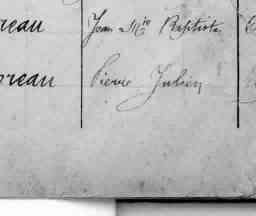 reau Jean Mie Baptiste
oreau Pierre Julien